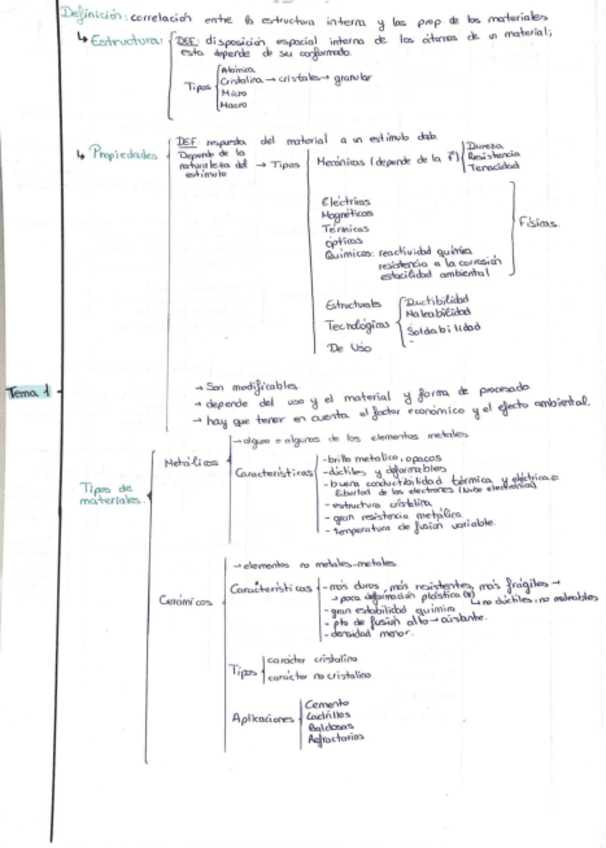 Definición: correlación entre la estructura interna y las prop. de los materiales
↳ Estructura: DEF: disposición espacial interna de los átomos de un material;
esta depende de su conformado.
Tipos
Atómica
Cristalina → cristales → granular
Micro
Macro
↳ Propiedades
DEF: respuesta del material a un estímulo dado
Depende de la
naturaleza del → Tipos
estímulo
Mecánicas (depende de la F)
Dureza
Resistencia
Tenacidad
Eléctricas
Magnéticas
Térmicas
ópticas
Químicas: reactividad química
resistencia a la corrosión
estabilidad ambiental
Físicas.
Estructurales
Tecnológicas
Ductibilidad
Maleabilidad
Soldabilidad
De Uso
Tema 1
→ Son modificables
→ depende del uso y el material y forma de procesado
→ hay que tener en cuenta el factor económico y el efecto ambiental.
Tipos de
materiales.
Metálicos
→ alguno o algunos de los elementos metales
Características
- brillo metálico, opacos
- dúctiles y deformables
- buena conductibilidad térmica y eléctrica
libertad de los electrones (nube electrónica)
- estructura cristalina
- gran resistencia metálica
- temperatura de fusión variable.
Cerámicos
→ elementos no metales-metales
Características
- más duros, más resistentes, más frágiles →
→ poca deformación plástica
↳ no dúctiles, no maleables
- gran estabilidad química
- pto de fusión alto → aislante.
- densidad menor.
Tipos
carácter cristalino
carácter no cristalino
Aplicaciones
Cemento
Ladrillos
Baldosas
Refractarios